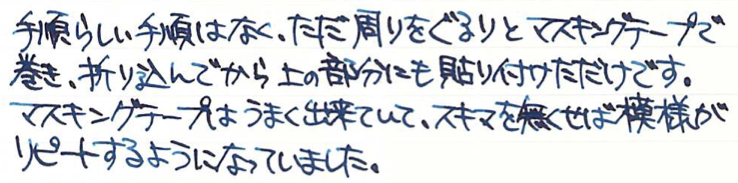 手順らしい手順はなく、ただ周りをぐるりとマスキングテープで
巻き、折り込んでから上の部分にも貼り付けただけです。
マスキングテープはうまく出来ていて、スキマを無くせば模様が
リピートするようになっていました。